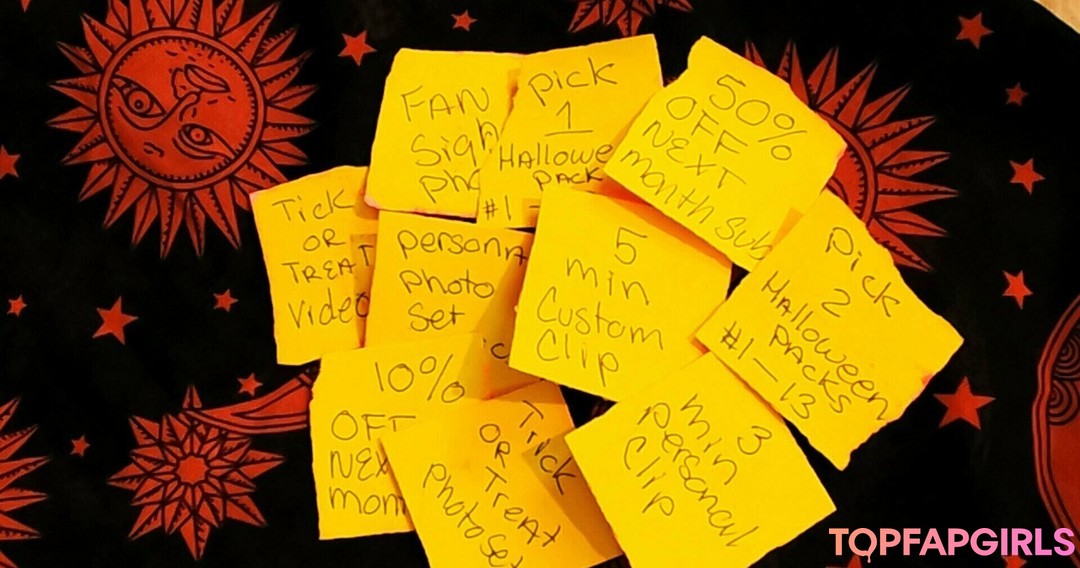 FAN
Sign
pho
pick
1
Hallowe
PACK
#1 -
50%
OFF
NEXT
month Sub
Tick
OR
TREAT
Video
persona
photo
Set
5
min
Custom
Clip
pick
2
Halloween
PACKS
#1—13
10%
OFF
NEX
mon
Trick
OR TreAt
photoSet
3
min
personal
Clip
TOPFAPGIRLS